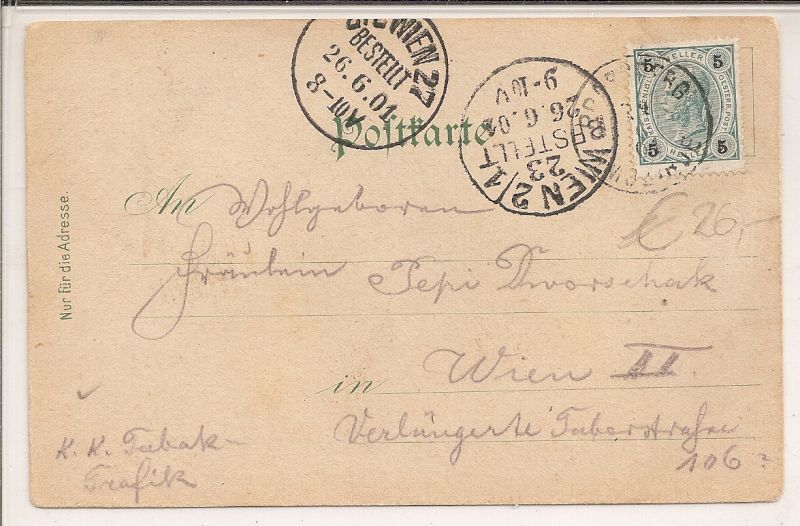 WIEN 2
BESTELLT
26.6.01
8-10V
9-10V
26.6.01
BESTELLT
23
WIEN 2/1
5 5
5 5
Postkarte
An Wohlgeboren
Fräulein Pepi Dworschak
in Wien II.
Verlängerte Taborstraße
106
K. K. Tabak-
Trafik
Nur für die Adresse.
€ 26,-